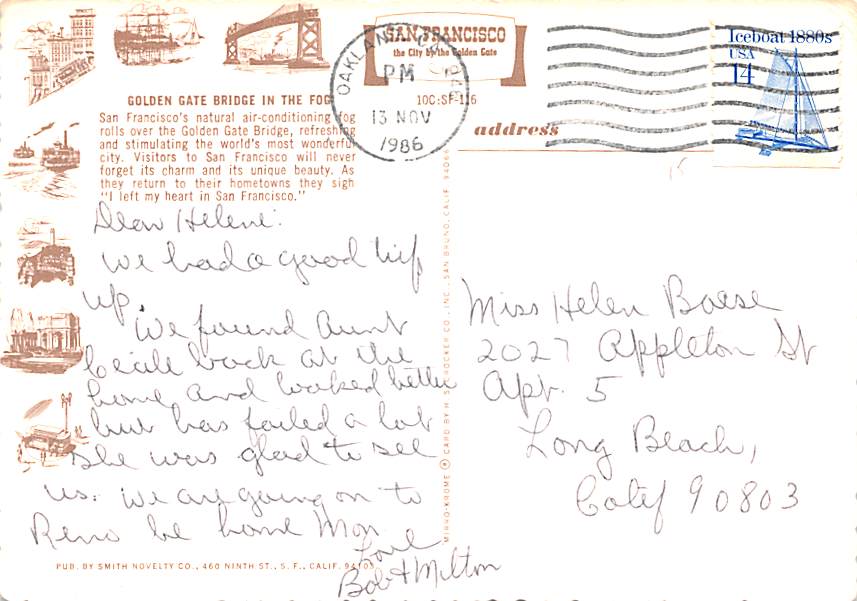 GOLDEN GATE BRIDGE IN THE FOG
San Francisco's natural air-conditioning fog
rolls over the Golden Gate Bridge, refreshing
and stimulating the world's most wonderful
city. Visitors to San Francisco will never
forget its charm and its unique beauty. As
they return to their hometowns they sigh
"I left my heart in San Francisco."
Dear Helene:
We had a good trip
up.
We found Aunt
Cecile back at the
home and looked better
but has failed a lot
She was glad to see
us. We are going on to
Reno be home Mon
Love
Bob & Milton
PUB. BY SMITH NOVELTY CO., 460 NINTH ST., S. F., CALIF. 94103
SAN FRANCISCO
the City by the Golden Gate
10C:SF-116
OAKLAND
PM
13 NOV
1986
address
Iceboat 1880s
USA
14
MIRRO-KROME ® CARD BY H. S. CROCKER CO., INC., SAN BRUNO, CALIF. 94066
Miss Helen Boese
2027 Appleton St
Apt. 5
Long Beach,
Calif 90803